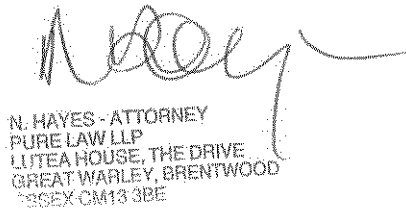 N. HAYES - ATTORNEY
PURE LAW LLP
LUTEA HOUSE, THE DRIVE
GREAT WARLEY, BRENTWOOD
ESSEX CM13 3BE